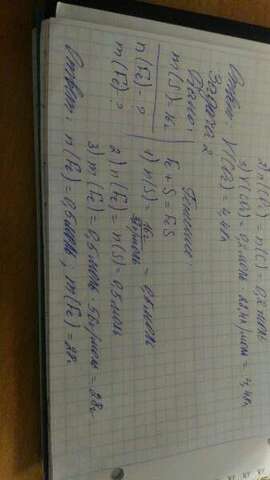 2) n(CO₂) = n(C) = 0,2 моль
3) V(CO₂) = 0,2 моль · 22,4 л/моль = 4,48 л
Ответ: V(CO₂) = 4,48 л
Задача 2
Дано: Решение:
m(S) = 16г Fe + S = FeS
n(Fe) - ? 1) n(S) = 16г / 32г/моль = 0,5 моль
m(Fe) - ? 2) n(Fe) = n(S) = 0,5 моль
3) m(Fe) = 0,5 моль · 56г/моль = 28г
Ответ: n(Fe) = 0,5 моль; m(Fe) = 28г